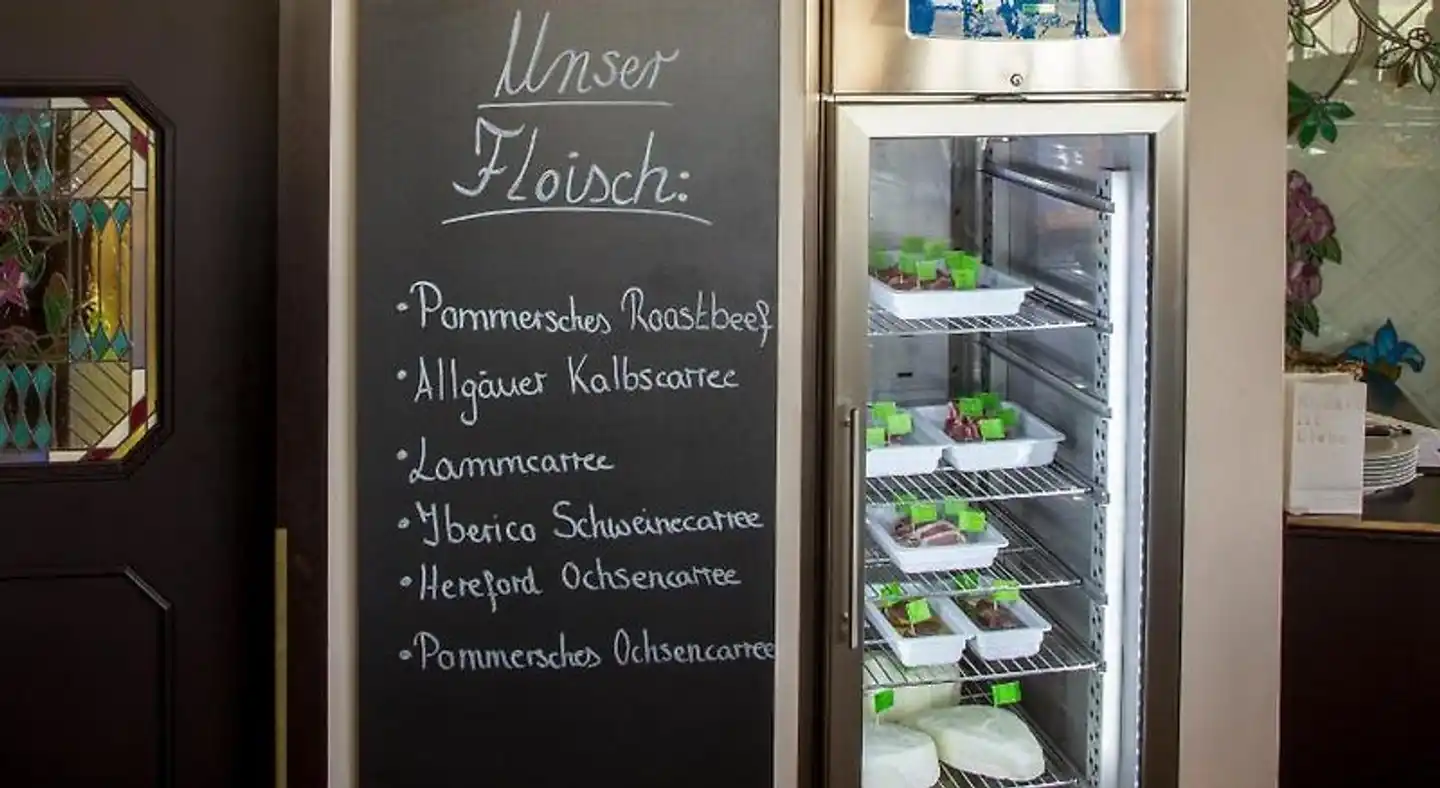 Unser
Fleisch:
• Pommersches Roastbeef
• Allgäuer Kalbscarree
• Lammcarree
• Iberico Schweinecarree
• Hereford Ochsencarree
• Pommersches Ochsencarree